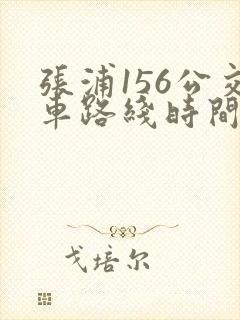 張浦156公交
車路綫時間
戈培尔